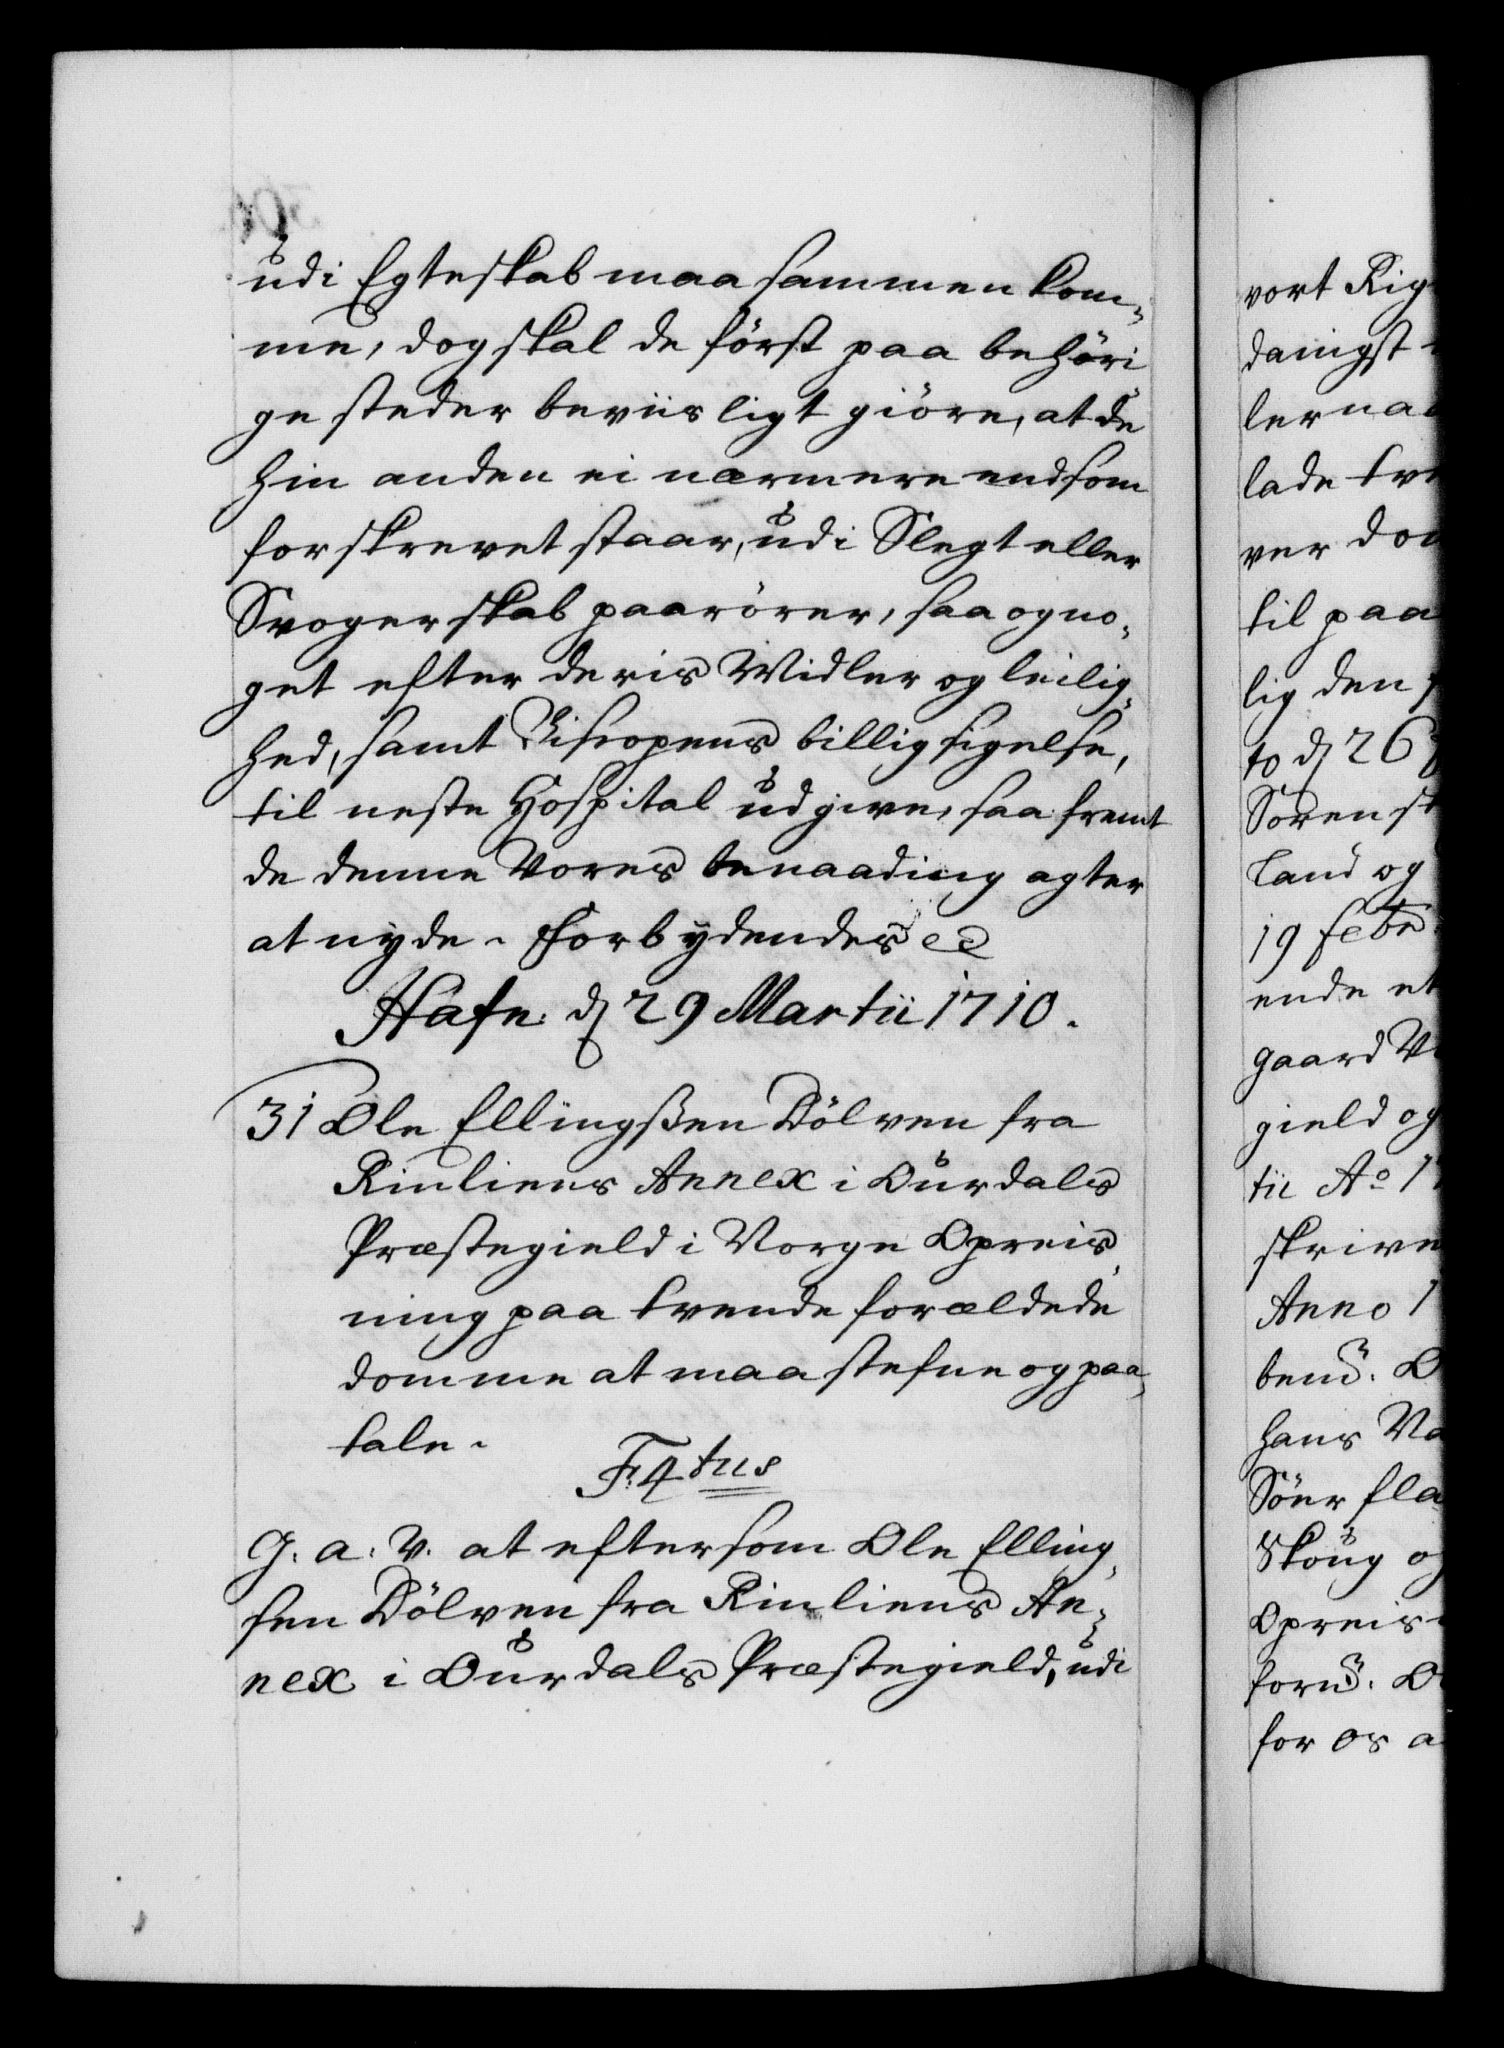 udi Egteskab maa sammen kom„
me, dog skal de först paa behöri
ge steder beviisligt giöre, at de
hin anden ei nærmere end som
forskrevet staar, udi Slegt eller
Svogerskab paarörer, saa og no„
get efter deris Midler og leilig„
hed, samt Biscopens billigsigelse,
til neste Hospital udgive, saa fremt
de denne Vores benaading agter
at nyde. Forbydendes etc
Hafn. d 29 Martii 1710.
31 Ole Ellingssen Dölven fra
Rinliens Annex i Ourdals
Præstegield i Norge Opreis„
ning paa tvende forældede
domme at maa stefne og paa„
tale.
F. 4tus
G. a. V. at eftersom Ole Elling„
sen Dölven fra Rinliens An„
nex i Ourdals Præstegield, udi
vort Rig
danigst
ler
lade
ver
til paa
lig den
to d 26
Sören
land og
19 febr.
ende et
gaard
gield og
tii Ao 17
skrive
Anno 1
bend. O
hans
Söer
Skoug
Opreis
fornd. O
for os a